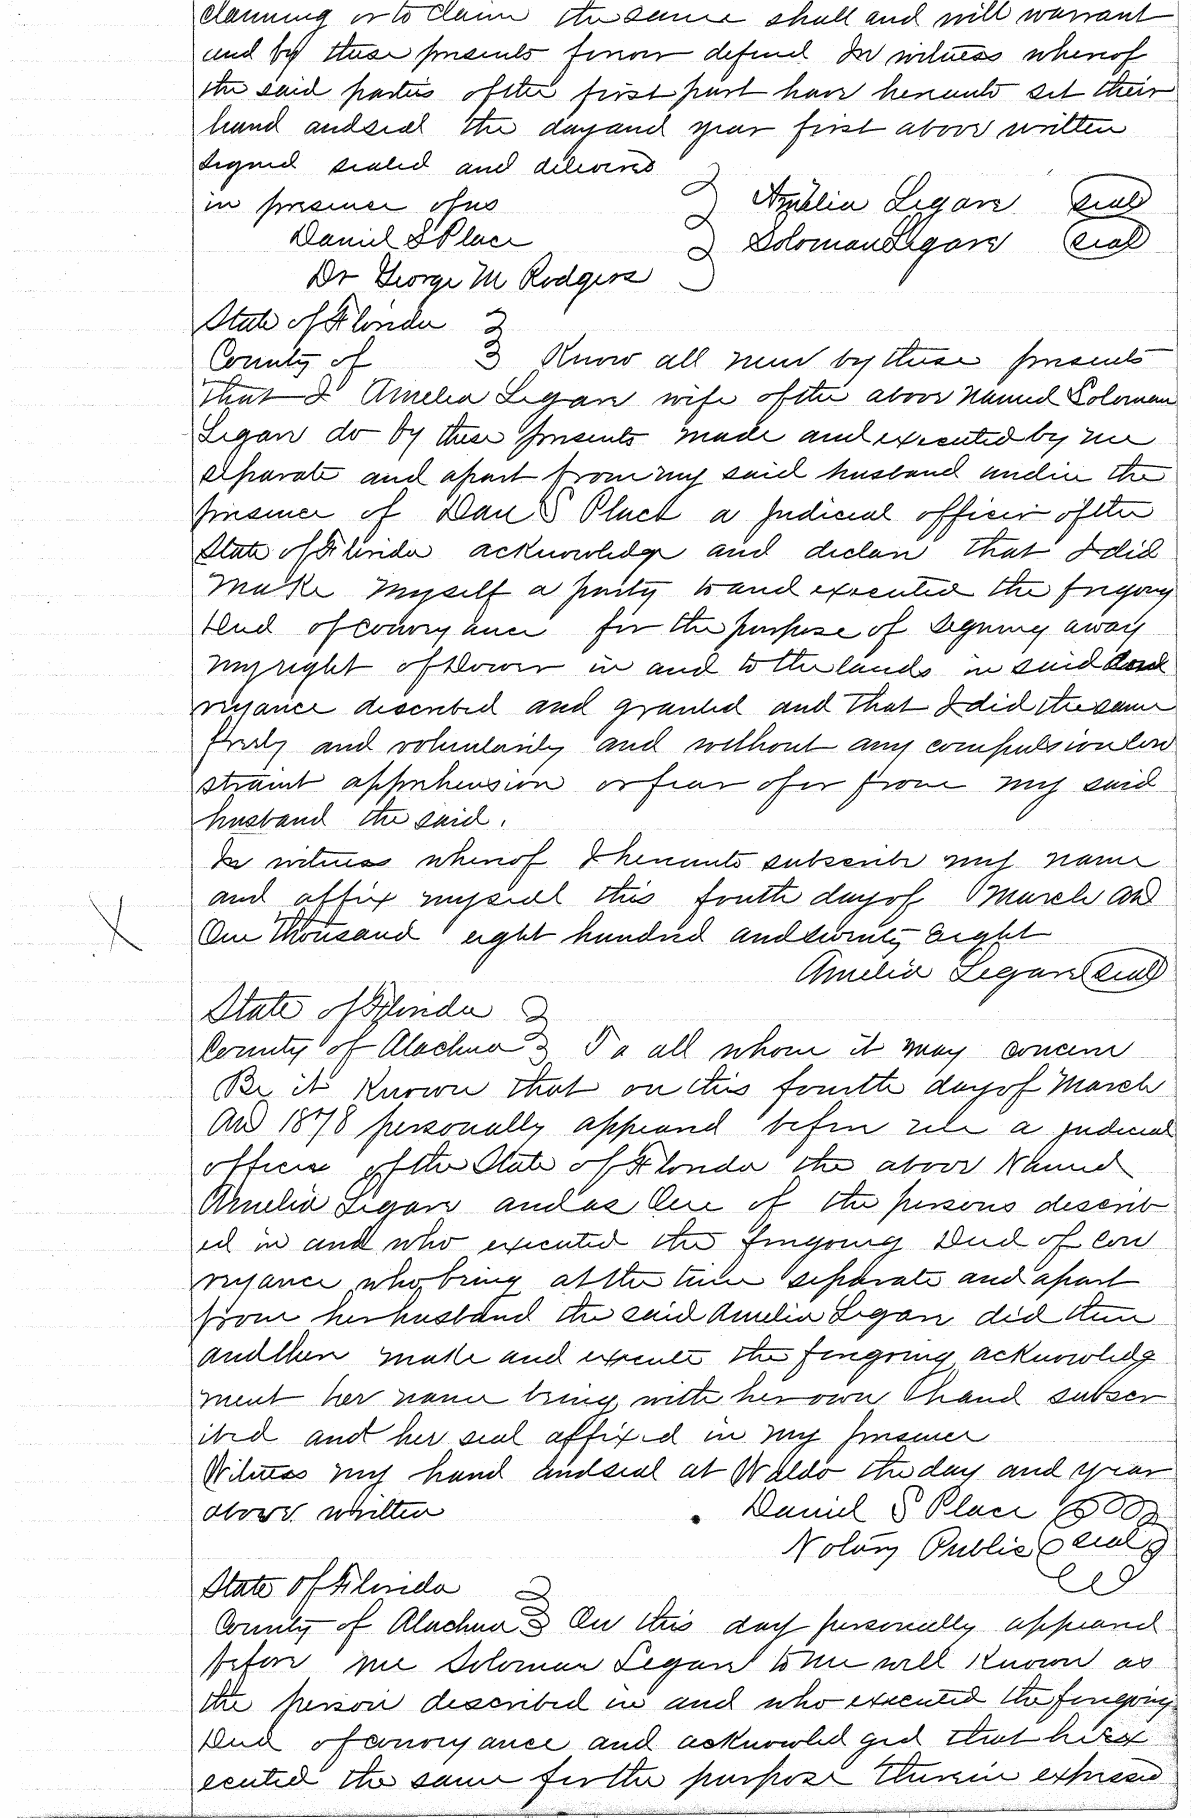 claiming or to claim the same shall and will warrant
and by these presents forever defend In witness whereof
the said parties of the first part have hereunto set their
hand and seal the day and year first above written
Signed sealed and delivered
in presence of us Amelia Legare seal
Daniel S Place Soloman Legare seal
Dr George M Rodgers
State of Florida
County of Know all men by these presents
that I Amelia Legare wife of the above named Soloman
Legare do by these presents made and executed by me
separate and apart from my said husband and in the
presence of Dan S Place a Judicial officer of the
State of Florida acknowledge and declare that I did
make myself a party to and executed the forgoing
Deed of conveyance for the purpose of signing away
my right of Dower in and to the lands in said Con
veyance described and granted and that I did the same
freely and voluntarily and without any compulsion con
straint apprehension or fear of or from my said
husband the said.
In witness whereof I hereunto subscribe my name
and affix my seal this fourth day of March AD
One thousand eight hundred and seventy eight
Amelia Legare seal
State of Florida
County of Alachua To all whom it may concern
Be it Known that on this fourth day of March
AD 1878 personally appeared before me a judicial
officer of the State of Florida the above Named
Amelia Legare and as One of the persons describ
ed in and who executed the foregoing Deed of con
veyance who being at the time separate and apart
from her husband the said Amelia Legare did then
and then make and execute the foregoing acknowledg
ment her name being with her own hand subscr
ibed and her seal affixed in my presence
Witness my hand and seal at Waldo the day and year
above written Daniel S Place
Notary Public seal
State of Florida
County of Alachua On this day personally appeared
before me Soloman Legare to me well Known as
the person described in and who executed the foregoing
Deed of conveyance and acknowledged that he ex
ecuted the same for the purpose therein expressed